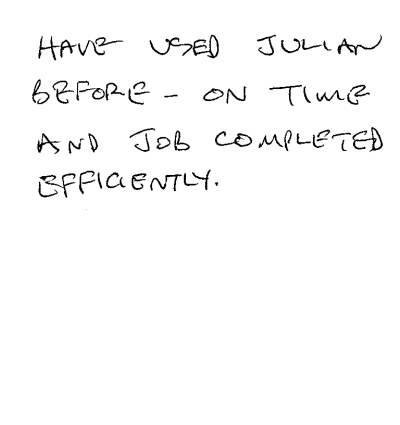 HAVE USED JULIAN
BEFORE - ON TIME
AND JOB COMPLETED
EFFICIENTLY.